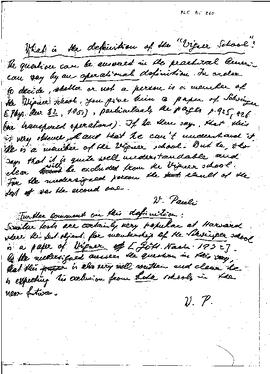 What is the definition of the "Wigner School"?
The question can be answered in the practical Ameri-
can way by an operational definition. In order
to decide, whether or not a person is a member of
the Wigner School, you give him a paper of Schwinger
[Phys. Rev. 82, 1951, particularly the pages p. 925, 926
for transposed operators]. If he then says, that this
is very obscure and that he can't understand it
he is a member of the Wigner School. But he, who
says that it is quite well understandable and
clear will be excluded from the Wigner School.
For the undersigned person the result of the
test was the second one.
V. Pauli
Further comment on this definition:
Similar tests are certainly very popular at Harvard
where the test object for membership of the Schwinger School
is a paper of Wigner [Gött. Nachr. 1932].
As the undersigned answers the question in this way,
that this paper is also very well written and clear he
is expecting his exclusion from both schools in the
near future.
V. P.